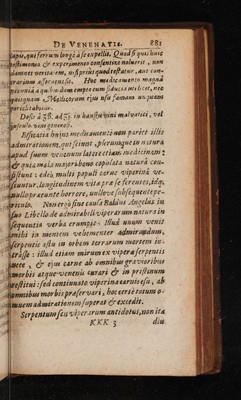 DE VENENATIS. 881
lapis, qui ferrum longè à se expellit. Quod si quis huic
testimonio & experimento consentire noluerit, non
damnet veritatem, nisi prius quod testatur, aut con-
trarium
Huc medicamento magnâ
pecuniâ à quibusdam empto cum fiducia
Mulierorum ejus usu
Dosis à ʒß. ad ʒj. in haustu vini malvatici, vel
Efficacia hujus medicamenti non pariet illis
admirationem, qui sciunt, plerumque in natura
apud suum venenum latere etiam medicinam:
& quia mala majoribus copulata natura con-
sistunt: edeis multi populi carne viperinâ ve-
scuntur, longitudinem vita præ se ferentes, idq;
nullo præeunte horrore, nullove subsequente pe-
riculo. Non ergò sine causa Rubius Angelus in
suo Libello de admirabili viperarum natura in
sequentia verba erumpit: Illud unum venit
mihi in mentem vehementer admirandum,
serpentis astu in orbem terrarum mortem in-
trasse: illud etiam mirum ex vipera serpentis
nece, & ejus carne ab omnibus gravioribus
morbis atque venenis curari & in pristinum
restitui: sed continuato viperina carnis esu, ab
omnibus morbis præservari, hoc certè totum o-
mnem admirationem superat & excedit.
Serpentum seu viperarum antidotus, non ita
KKK 3 diu